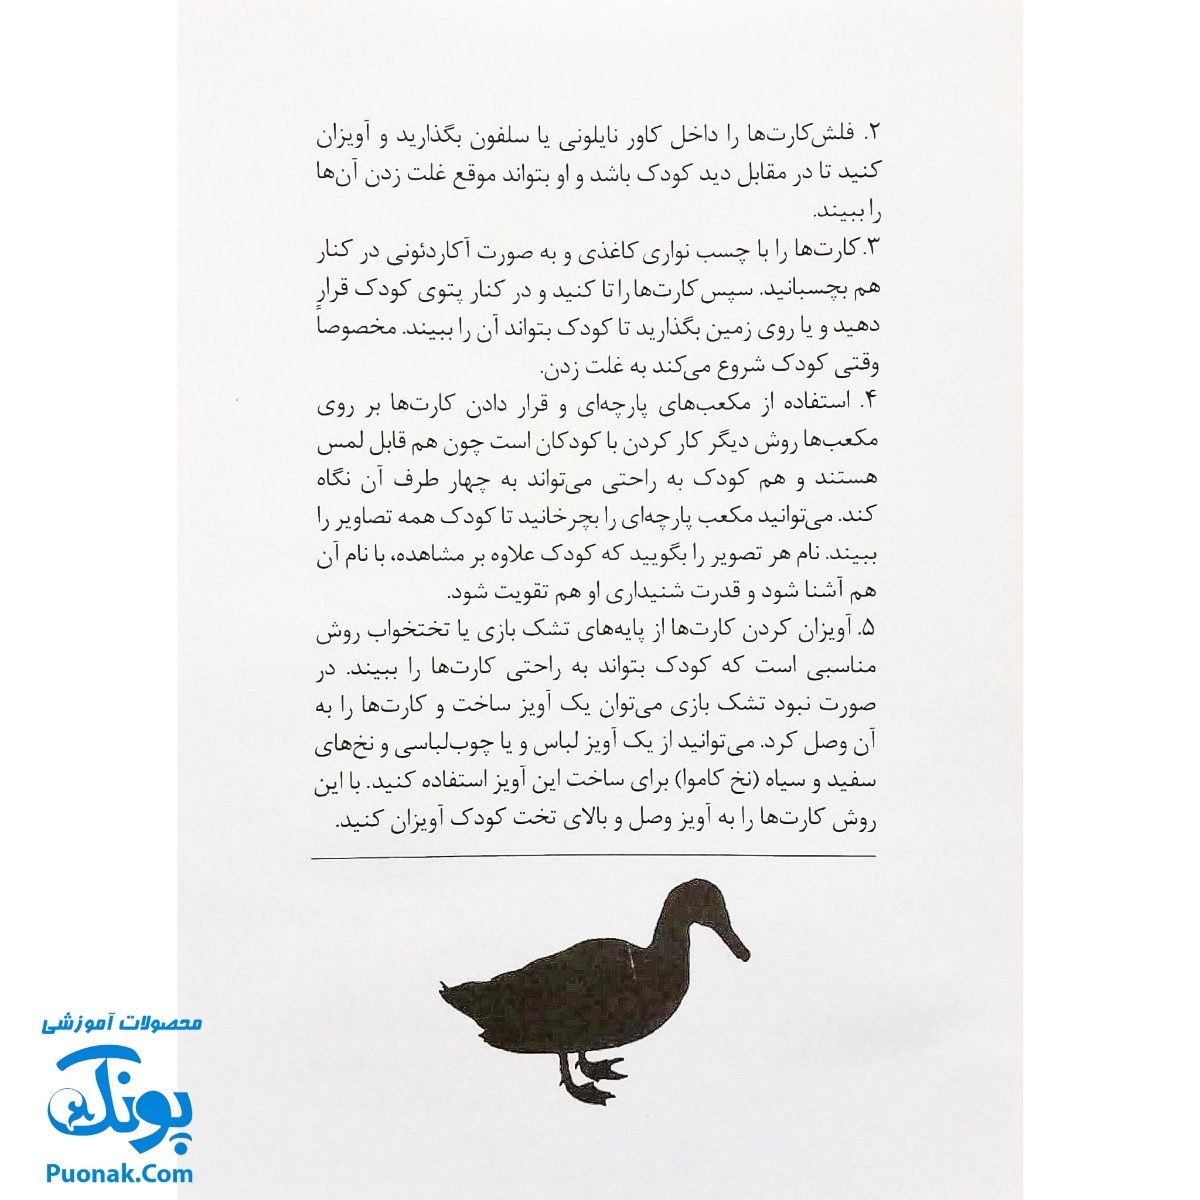 ۲. فلش‌کارت‌ها را داخل کاور نایلونی یا سلفون بگذارید و آویزان
کنید تا در مقابل دید کودک باشد و او بتواند موقع غلت زدن آن‌ها
را ببیند.
۳.کارت‌ها را با چسب نواری کاغذی و به صورت آکاردئونی در کنار
هم بچسبانید. سپس کارت‌ها را تا کنید و در کنار پتوی کودک قرار
دهید و یا روی زمین بگذارید تا کودک بتواند آن را ببیند. مخصوصاً
وقتی کودک شروع می‌کند به غلت زدن.
۴. استفاده از مکعب‌های پارچه‌ای و قرار دادن کارت‌ها بر روی
مکعب‌ها روش دیگر کار کردن با کودکان است چون هم قابل لمس
هستند و هم کودک به راحتی می‌تواند به چهار طرف آن نگاه
کند. می‌توانید مکعب پارچه‌ای را بچرخانید تا کودک همه تصاویر را
ببیند. نام هر تصویر را بگویید که کودک علاوه بر مشاهده، با نام آن
هم آشنا شود و قدرت شنیداری او هم تقویت شود.
۵. آویزان کردن کارت‌ها از پایه‌های تشک بازی یا تختخواب روش
مناسبی است که کودک بتواند به راحتی کارت‌ها را ببیند. در
صورت نبود تشک بازی می‌توان یک آویز ساخت و کارت‌ها را به
آن وصل کرد. می‌توانید از یک آویز لباس و یا چوب‌لباسی و نخ‌های
سفید و سیاه (نخ کاموا) برای ساخت این آویز استفاده کنید. با این
روش کارت‌ها را به آویز وصل و بالای تخت کودک آویزان کنید.
محصولات آموزشی
پونک
Puonak.Com